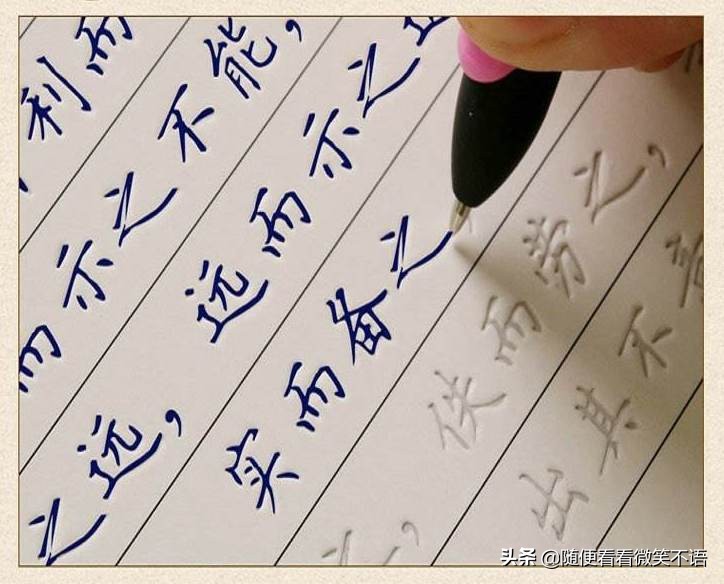 利而
而示之不能,
之远,远而示之
实而备之
之,佚而劳之,
出其不
头条 @随便看看微笑不语